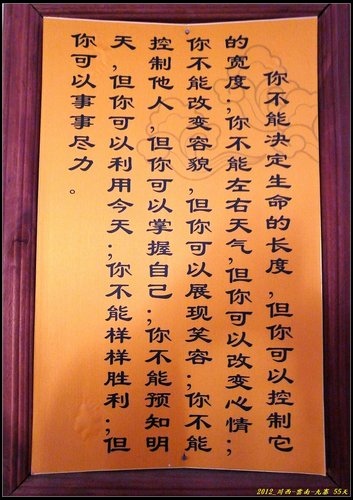 你不能决定生命的长度,但你可以控制它
的宽度;你不能左右天气,但你可以改变心情;
你不能改变容貌,但你可以展现笑容;你不能
控制他人,但你可以掌握自己;你不能预知明
天,但你可以利用今天;你不能样样胜利;但
你可以事事尽力。
2012_川西-雲南-九寨 55天